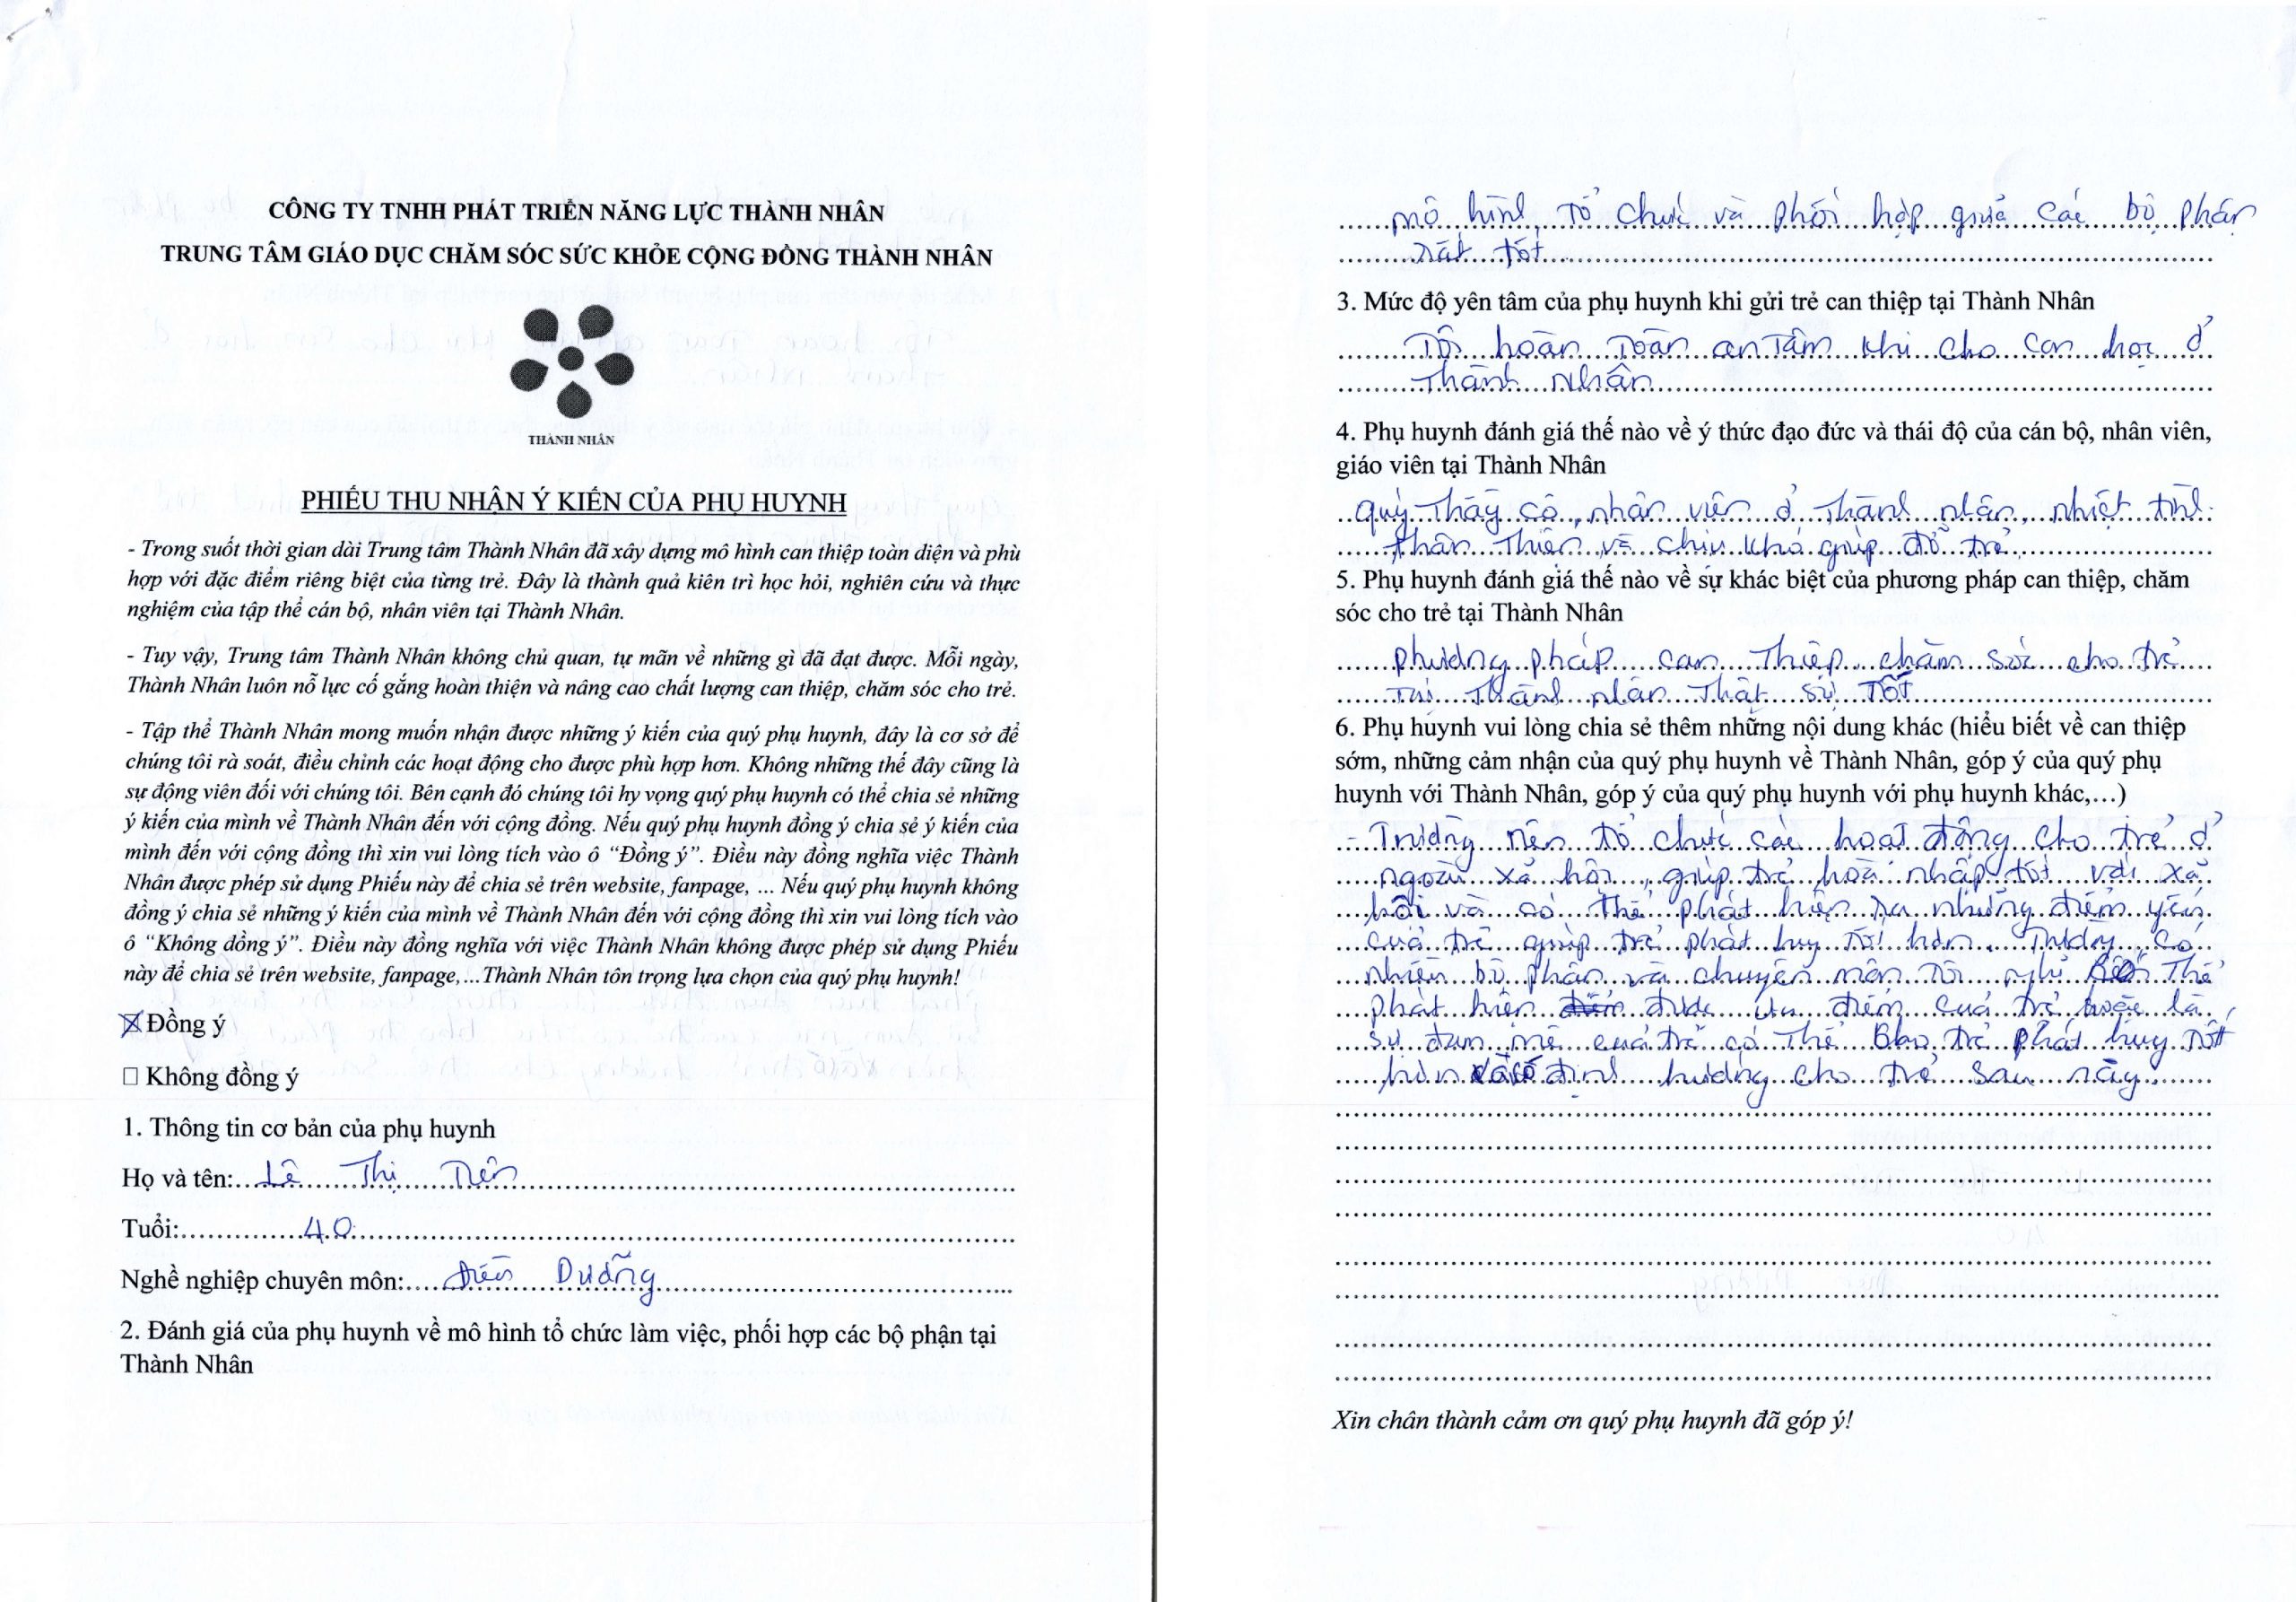 CÔNG TY TNHH PHÁT TRIỂN NĂNG LỰC THÀNH NHÂN
TRUNG TÂM GIÁO DỤC CHĂM SÓC SỨC KHỎE CỘNG ĐỒNG THÀNH NHÂN
THÀNH NHÂN
PHIẾU THU NHẬN Ý KIẾN CỦA PHỤ HUYNH
- Trong suốt thời gian dài Trung tâm Thành Nhân đã xây dựng mô hình can thiệp toàn diện và phù
hợp với đặc điểm riêng biệt của từng trẻ. Đây là thành quả kiên trì học hỏi, nghiên cứu và thực
nghiệm của tập thể cán bộ, nhân viên tại Thành Nhân.
- Tuy vậy, Trung tâm Thành Nhân không chủ quan, tự mãn về những gì đã đạt được. Mỗi ngày,
Thành Nhân luôn nỗ lực cố gắng hoàn thiện và nâng cao chất lượng can thiệp, chăm sóc cho trẻ.
- Tập thể Thành Nhân mong muốn nhận được những ý kiến của quý phụ huynh, đây là cơ sở để
chúng tôi rà soát, điều chỉnh các hoạt động cho được phù hợp hơn. Không những thế đây cũng là
sự động viên đối với chúng tôi. Bên cạnh đó chúng tôi hy vọng quý phụ huynh có thể chia sẻ những
ý kiến của mình về Thành Nhân đến với cộng đồng. Nếu quý phụ huynh đồng ý chia sẻ ý kiến của
mình đến với cộng đồng thì xin vui lòng tích vào ô “Đồng ý”. Điều này đồng nghĩa việc Thành
Nhân được phép sử dụng Phiếu này để chia sẻ trên website, fanpage, ... Nếu quý phụ huynh không
đồng ý chia sẻ những ý kiến của mình về Thành Nhân đến với cộng đồng thì xin vui lòng tích vào
ô “Không đồng ý”. Điều này đồng nghĩa với việc Thành Nhân không được phép sử dụng Phiếu
này để chia sẻ trên website, fanpage,...Thành Nhân tôn trọng lựa chọn của quý phụ huynh!
☒ Đồng ý
☐ Không đồng ý
1. Thông tin cơ bản của phụ huynh
Họ và tên: Lê Thị
Tuổi: 40
Nghề nghiệp chuyên môn: Điều Dưỡng
2. Đánh giá của phụ huynh về mô hình tổ chức làm việc, phối hợp các bộ phận tại
Thành Nhân
mô hình, tổ chức và phối hợp giữa các bộ phận
rất tốt
3. Mức độ yên tâm của phụ huynh khi gửi trẻ can thiệp tại Thành Nhân
Tôi hoàn toàn an tâm khi cho con học ở
Thành Nhân
4. Phụ huynh đánh giá thế nào về ý thức đạo đức và thái độ của cán bộ, nhân viên,
giáo viên tại Thành Nhân
quý Thầy cô, nhân viên ở Thành nhân, nhiệt tình
thân Thiện và chịu khó giúp đỡ trẻ.
5. Phụ huynh đánh giá thế nào về sự khác biệt của phương pháp can thiệp, chăm
sóc cho trẻ tại Thành Nhân
phương pháp can Thiệp chăm sóc cho trẻ
Tại Thành nhân Thật sự Tốt
6. Phụ huynh vui lòng chia sẻ thêm những nội dung khác (hiểu biết về can thiệp
sớm, những cảm nhận của quý phụ huynh về Thành Nhân, góp ý của quý phụ
huynh với Thành Nhân, góp ý của quý phụ huynh với phụ huynh khác,…)
- Trường nên tổ chức các hoạt động cho trẻ ở
ngoài xã hội, giúp trẻ hoà nhập tốt với xã
hội và có thể phát hiện ra những điểm yếu
của trẻ giúp trẻ phát huy tốt hơn. Trường có
nhiều bộ phận và chuyên môn tôi nghĩ Thể
phát hiện được ưu điểm của trẻ hoặc là
sự đam mê của trẻ có Thể trẻ phát huy tốt
hơn định hướng cho trẻ sau này.
Xin chân thành cảm ơn quý phụ huynh đã góp ý!